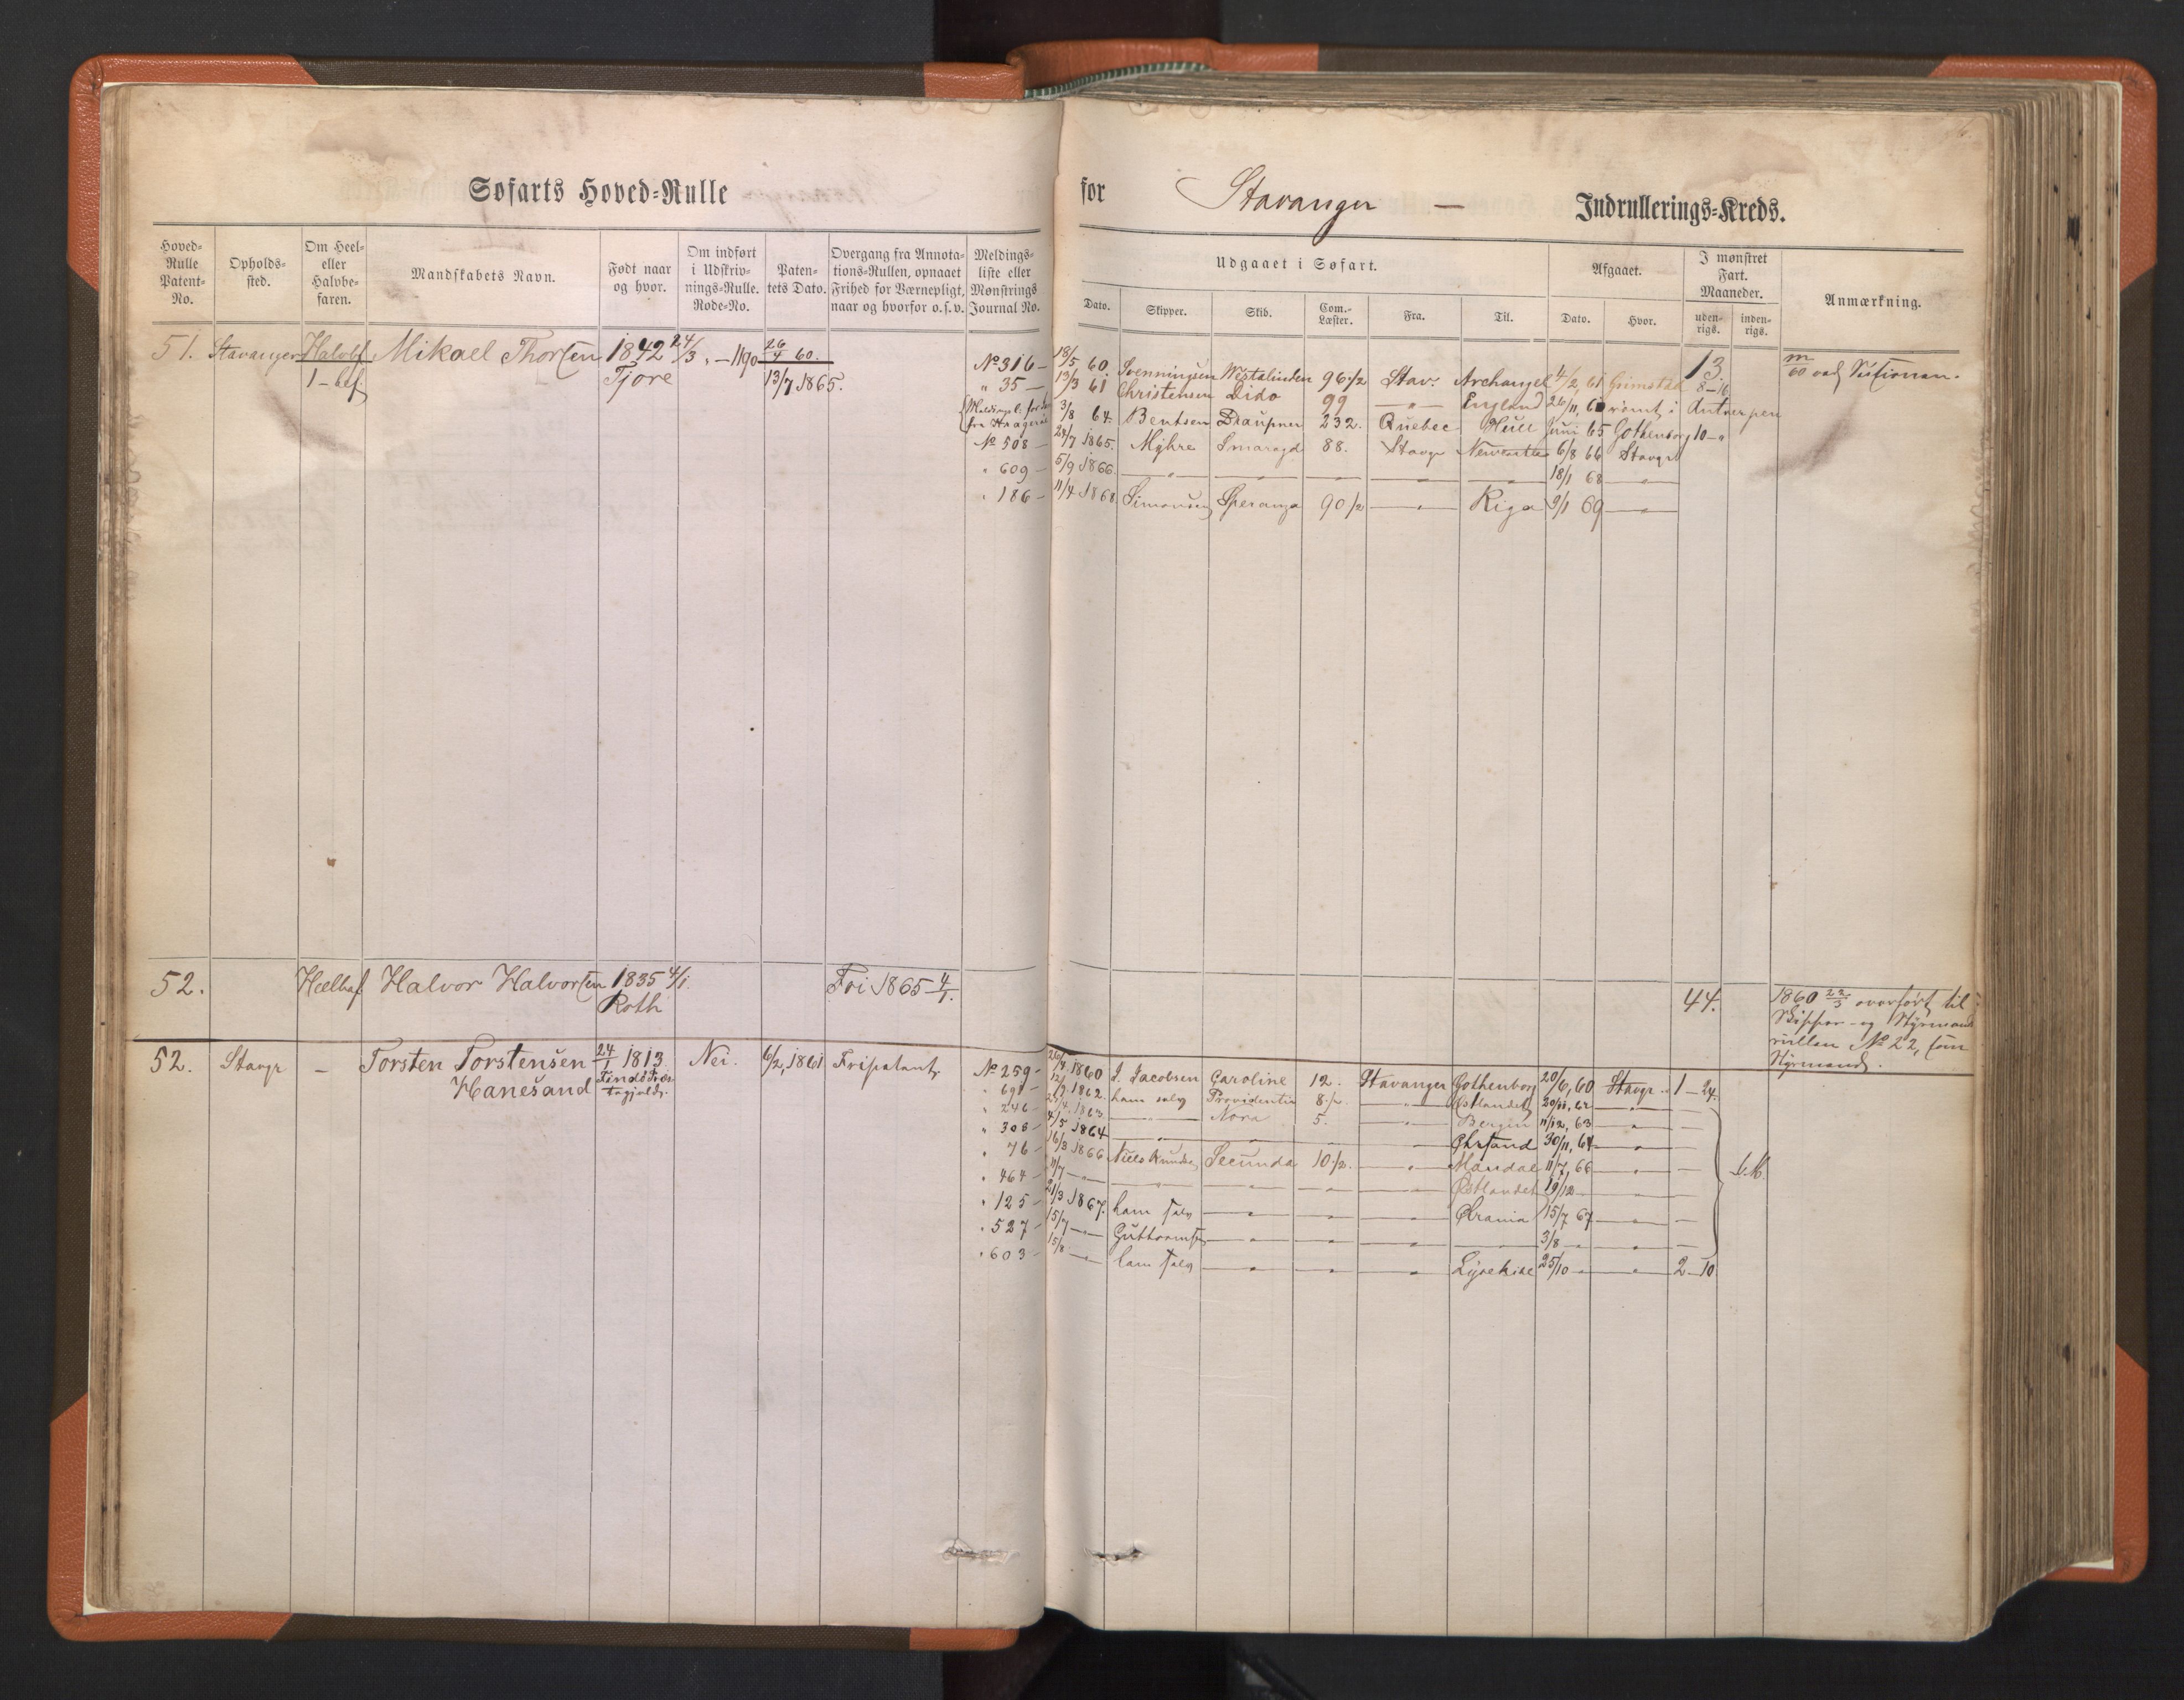 Søfarts Hoved=Rulle
for Stavanger — Indrullerings=Kreds.
Hoved=Rulle Patent=No.
Opholds=sted.
Om Heel= eller Halvbe=faren.
Mandskabets Navn.
Født naar og hvor.
Om indført i Udskriv=nings=Rulle. Rode=No.
Paten=tets Dato.
Overgang fra Annota=tions=Rullen, opnaaet Frihed for Værnepligt, naar og hvorfor o. s. v.
Meldings=liste eller Mønstrings Journal No.
Udgaaet i Søfart.
Dato. Skipper. Skib. Com.=Læster. Fra. Til.
Afgaaet.
Dato. Hvor.
I mønstret Fart. Maaneder.
uden=rigs. inden=rigs.
Anmærkning.
51. Stavanger Halvbf Mikael Thorsen 1842 24/3 „ — 1190 26/4 60.
1 – bef. Tjøre 13/7 1865.
No 316 – 18/5 60. Svenningsen Vestalinden 96 1/2 Stav: Archangel 4/2, 61 Grimstad 13
„ 35 — 13/3 61 Christensen Dido 99 — „ — England 26/11, 61 rømt i Antwerpen 8–16
fra Kragerøe 3/8 64. Bentsen Draupner 232. Quebec Hull Juni 65 Gothenborg 10 – „
No 508 — 24/7 1865. Myhre Smaragd 88. Stavgr Newcastle 6/8 66 Stavgr
„ 609 — 5/9 1866. — „ — — „ — — „ — — „ — — „ — 18/1 68 — „ —
„ 186 – 11/4 1868. Simonsen Speranza 90 1/2 — „ — Riga 9/1 69 — „ —
52. Heelbef Halvor Halvorsen 1835 4/1. Fri 1865 4/1. 44.
Roth
1860 22/3 overført til
Skipper – og Styrmands
rullen No 22, som
Styrmand.
52. Stavgr – Torsten Torstensen 24/1 1813. Nei. 6/2, 1861 Fripatent,
Hanesand
No 259 – 26/4 1860 J. Jacobsen Caroline 12. Stavanger Gothenborg 20/6, 60 Stavgr. 1 – 24.
„ 691 – 12/9 1862. ham selv Providentia 8 1/2. — „ — Østlandet 20/11, 62 — „ — —
„ 246 – 1863 — „ — Nora 5. — „ — Bergen 11/12, 63 — „ — —
„ 308 – 4/5 1864 — „ — — „ — „ Chrsand 30/11, 64 — „ —
„ 76 – 16/3 1866 Niels Knudsen Secunda 10 1/2. — „ — Mandal 11/7, 66 — „ — —
„ 464 – 11/7 – „ — — „ — — „ — — „ — — „ — Østlandet 19/12 – „ — „ —
„ 125 – 21/3 1867. ham selv — „ — — „ — — „ — Chrania 15/7 67 — „ — —
„ 527 – 15/7 – „ — Guttormsen — „ — — „ — — „ — — „ — 3/8 – „ — „ — —
„ 603 – 15/8 – „ — ham selv — „ — — „ — — „ — Lysekihl 25/10 „ — „ — 2 – 10